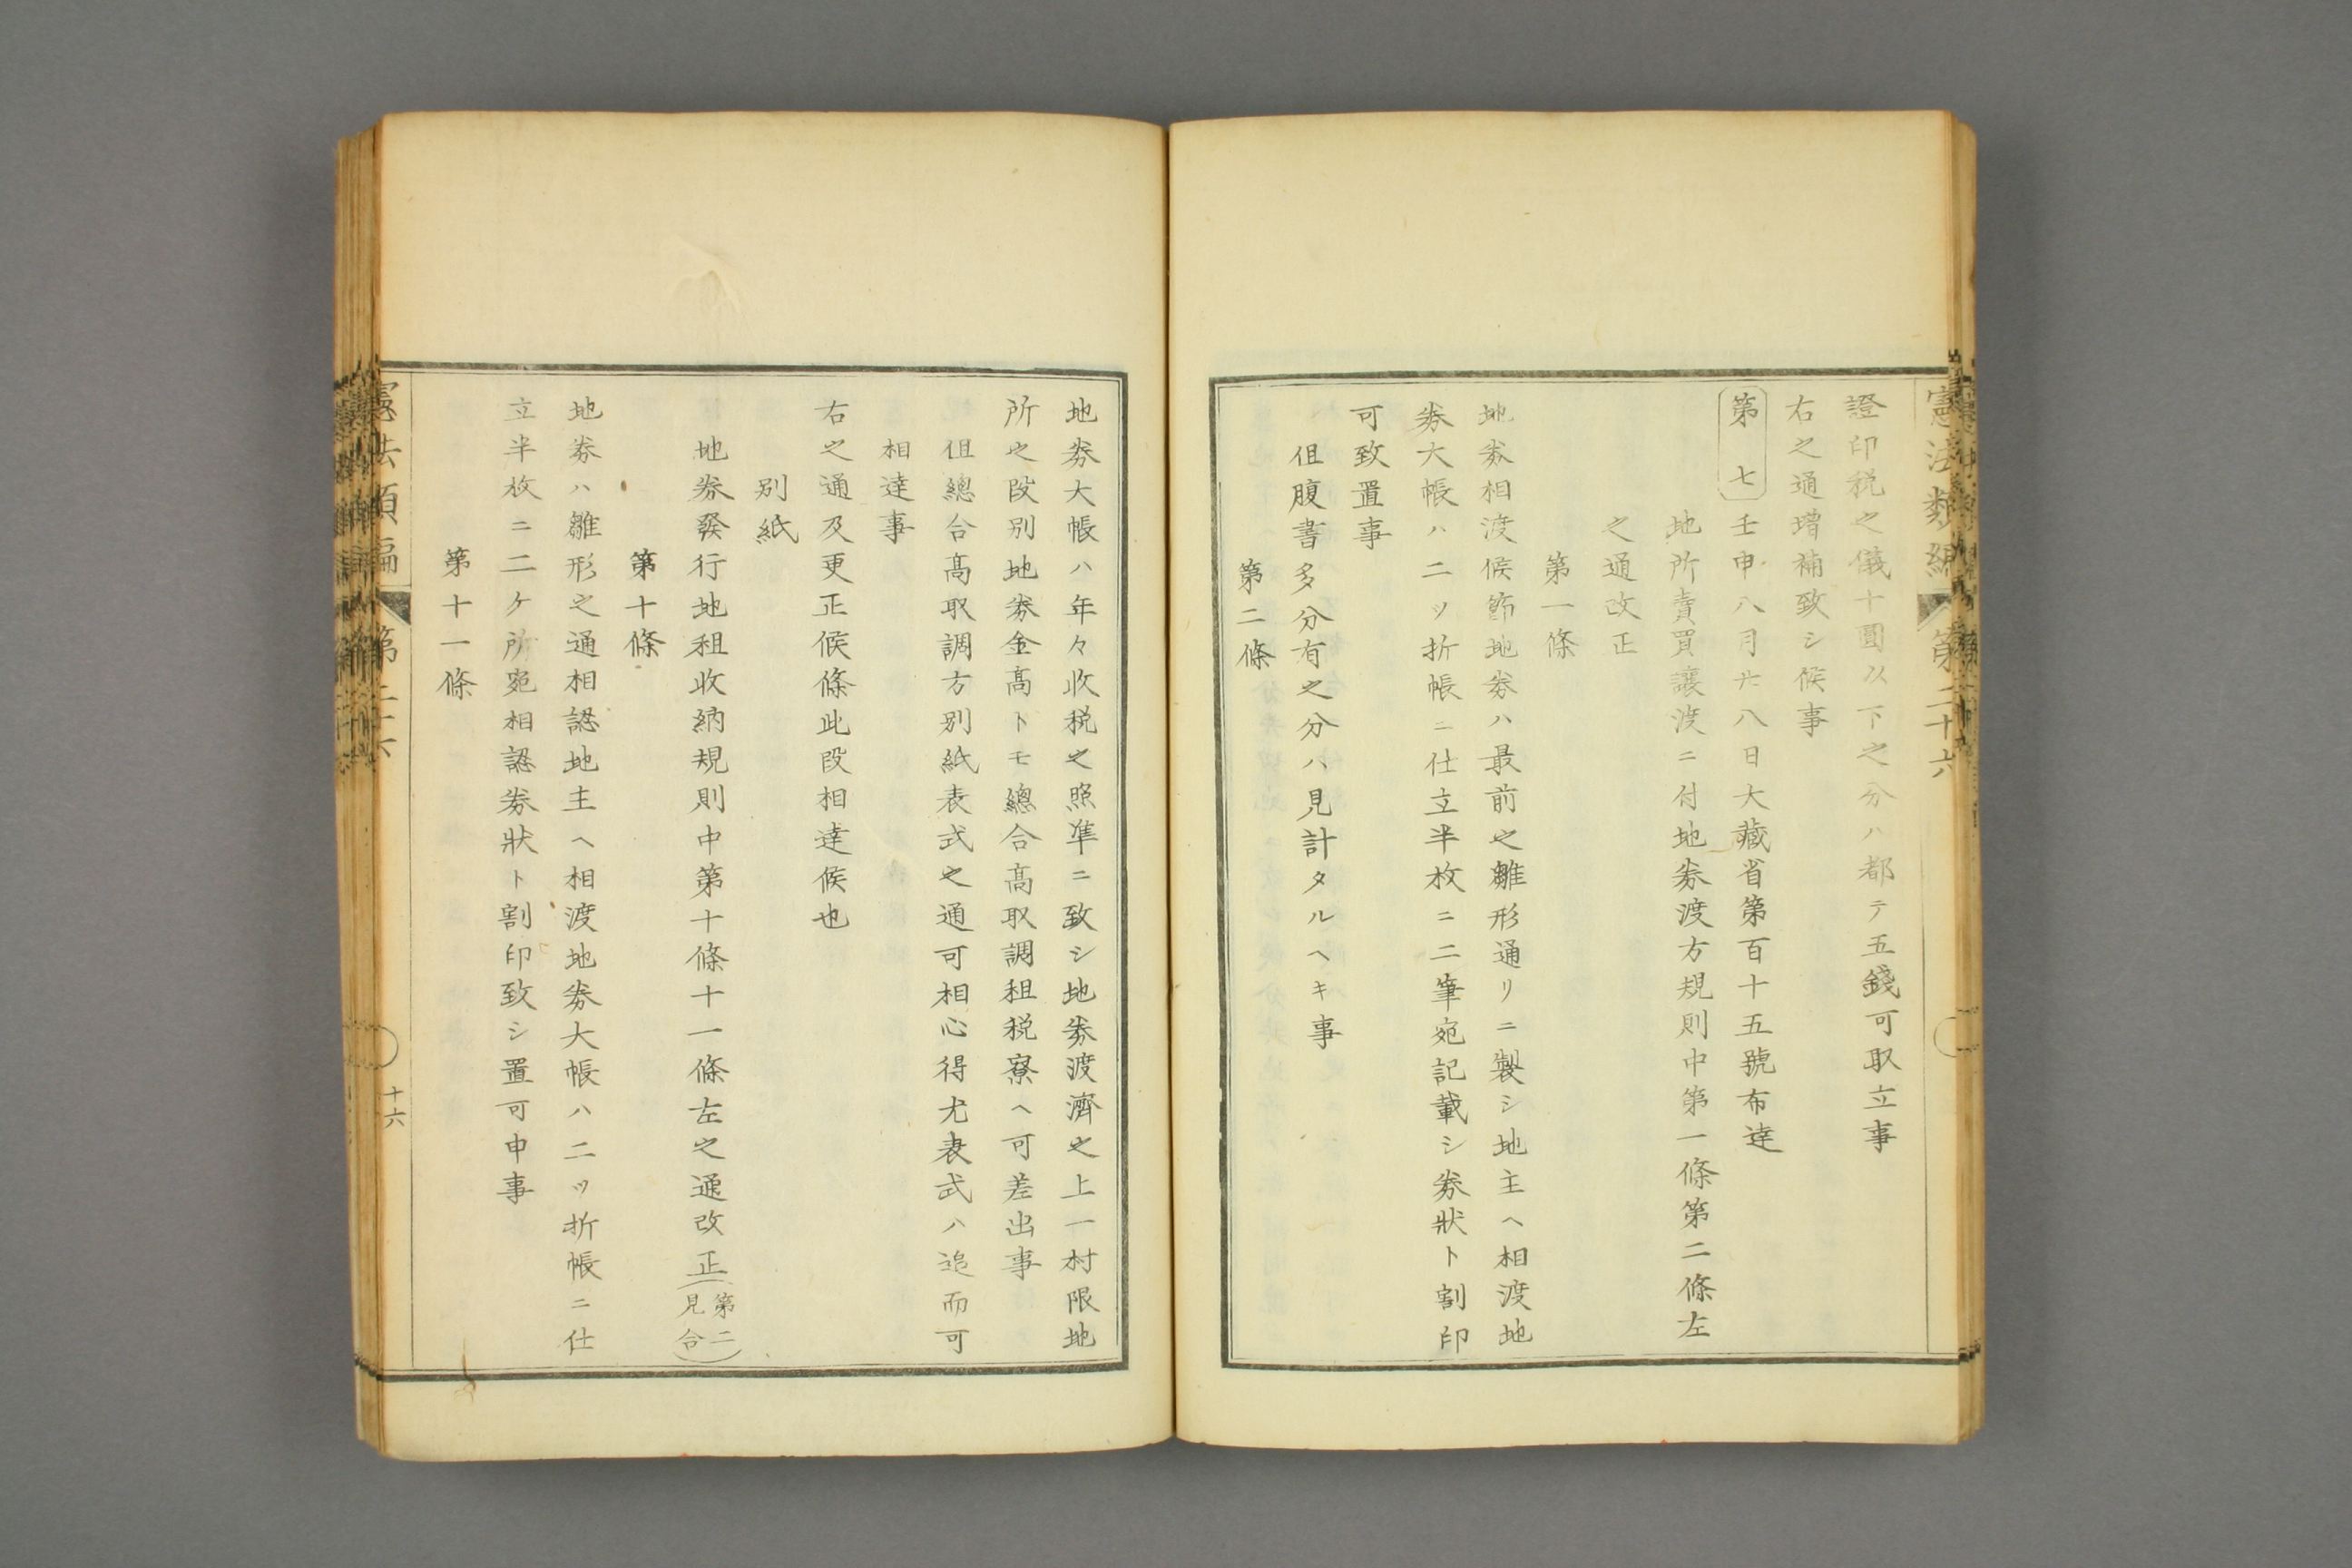 憲法類編 第二十六
證印税之儀十圓以下之分ハ都テ五錢可取立事
右之通増補致シ候事
第七 壬申八月廿八日大藏省第百十五號布達
地所賣買讓渡ニ付地券渡方規則中第一條第二條左
之通改正
第一條
地券相渡候節地券ハ最前之雛形通リニ製シ地主ヘ相渡地
券大帳ハ二ッ折帳ニ仕立半枚ニ二筆宛記載シ券狀ト割印
可致置事
但腹書多分有之分ハ見計タルヘキ事
第二條
地券大帳ハ年々收税之照準ニ致シ地券渡濟之上一村限地
所之段別地券金高トモ總合高取調租税寮ヘ可差出事
但總合高取調方別紙表式之通可相心得尤表式ハ追而可
相達事
右之通及更正候條此段相達候也
別紙
地券發行地租收納規則中第十條十一條左之通改正(第二見合)
第十條
地券ハ雛形之通相認地主ヘ相渡地券大帳ハ二ッ折帳ニ仕
立半枚ニ二ケ所宛相認券狀ト割印致シ置可申事
第十一條
憲法類編 第二十六
十六